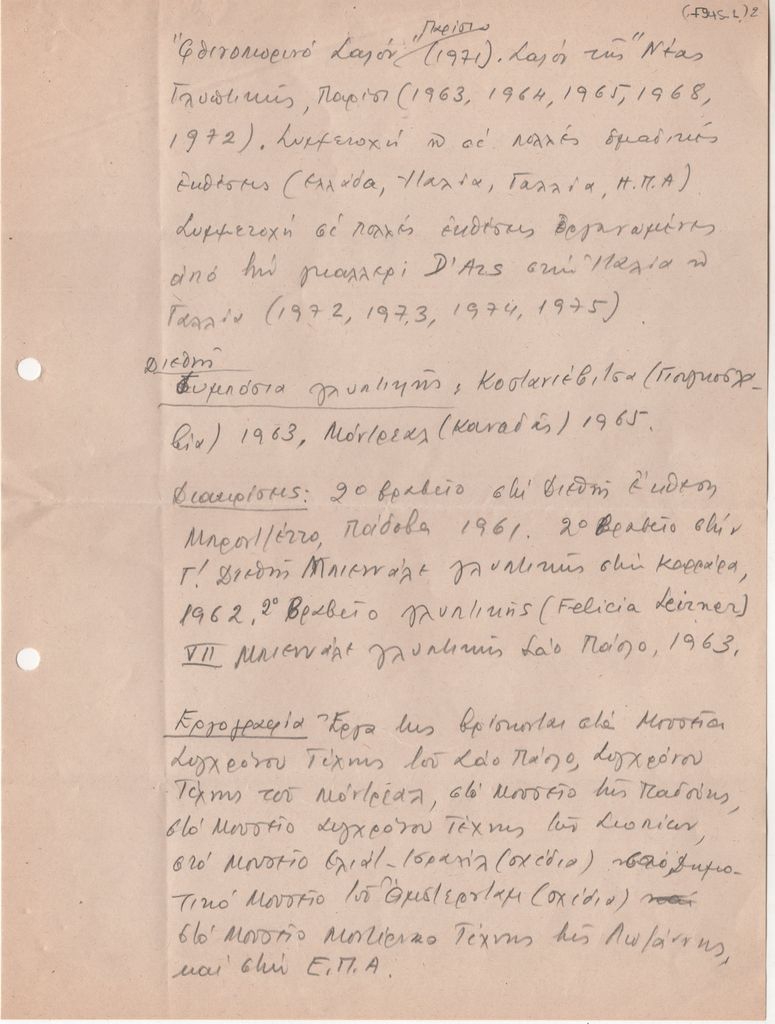 2
Παρίσι
"Φθινοπωρινό Σαλόν" (1971). Σαλόν της "Νέας
Γλυπτικής, Παρίσι (1963, 1964, 1965, 1968,
1972). Συμμετοχή σέ πολλές ὁμαδικές
ἐκθέσεις (Ελλάδα, Ἰταλία, Γαλλία, Η.Π.Α)
Συμμετοχή σέ πολλές ἐκθέσεις ὀργανωμένες
ἀπό τήν γκαλλερί D'Ars στήν Ἰταλία
Γαλλία (1972, 1973, 1974, 1975)
Διεθνή
Συμπόσια γλυπτικῆς: Κοστανιέβιτσα (Γιουγκοσλα-
βία) 1963, Μόντρεαλ (Καναδᾶς) 1965.
Διακρίσεις: 2ο βραβεῖο στή Διεθνή Ἔκθεση
Μπροντζέττο, Πάδοβα 1961. 2ο Βραβεῖο στήν
Γ! Διεθνή Μπιεννάλε γλυπτικῆς στήν Καρράρα,
1962, 2ο Βραβεῖο γλυπτικῆς (Felicia Leirner)
VII Μπιεννάλε γλυπτικῆς Σάο Πάολο, 1963.
Εργογραφία Ἔργα της βρίσκονται στά Μουσεῖα
Συγχρόνου Τέχνης τοῦ Σάο Πάολο, Συγχρόνου
Τέχνης τοῦ Μόντρεαλ, στό Μουσεῖο τῆς Παδούης,
στό Μουσεῖο Συγχρόνου Τέχνης τῶν Σκοπίων,
στό Μουσεῖο Ελιάτ-Ισραήλ (σχέδιο) Δημο-
τικό Μουσεῖο τοῦ Ἄμστερνταμ (σχέδιο)
στό Μουσεῖο Μοντέρνας Τέχνης τῆς Λωζάννης,
καί στήν Ε.Π.Α.